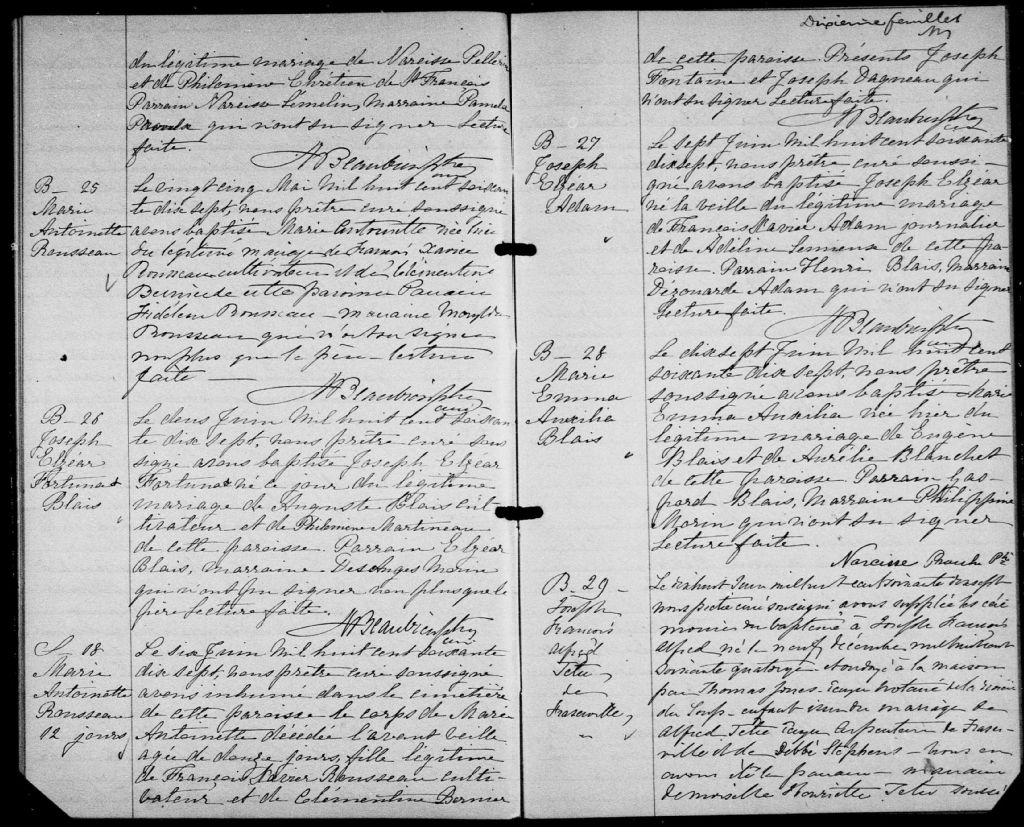 du légitime mariage de Narcisse Pellerin
et de Philomène Chrétien de St François
Parrain Narcisse Marraine Pamela
qui n'ont su signer Lecture
faite.
B – 25
Marie
Antoinette
Rousseau
Le vingt cinq Mai Mil huit cent soixan
te dix sept, nous prêtre curé soussigné
avons baptisé Marie Antoinette née hier
du légitime mariage de François Xavier
Rousseau cultivateur et de Clémentine
Bernier de cette paroisse Parrain
Fidèle Rousseau – marraine
Rousseau qui n'ont su signer
non plus que le père – Lecture
faite –
B – 26
Joseph
Elzéar
Fortunat
Blais
Le deux Juin Mil huit cent soixan
te dix sept, nous prêtre curé sous
signé avons baptisé Joseph Elzéar
Fortunat né ce jour du légitime
mariage de Auguste Blais cul
tivateur et de Philomène Martineau
de cette paroisse. Parrain Elzéar
Blais, marraine Desanges Morin
qui n'ont pu signer non plus que le
père Lecture faite.
S – 18
Marie
Antoinette
Rousseau
12 jours
Le six Juin Mil huit cent soixante
dix sept, nous prêtre curé soussigné
avons inhumé dans le cimetière
de cette paroisse le corps de Marie
Antoinette décédée l'avant veille
agée de douze jours, fille légitime
de François Xavier Rousseau culti-
vateur et de Clémentine Bernier
Dixième feuillet
de cette paroisse. Présents Joseph
Fontaine et Joseph Dagneau qui
n'ont su signer Lecture faite.
B – 27
Joseph
Elzéar
Adam
Le sept Juin Mil huit cent soixante
dix sept, nous prêtre curé soussi-
gné avons baptisé Joseph Elzéar
né la veille du légitime mariage
de François Xavier Adam journalier
et de Adéline Lemieux de cette pa
roisse. Parrain Henri Blais, Marraine
Dézouarde Adam qui n'ont su signer
Lecture faite.
B – 28
Marie
Emma
Auxilia
Blais
Le dix sept Juin Mil huit cent
soixante dix sept, nous prêtre
soussigné avons baptisé Marie
Emma Auxilia née hier du
légitime mariage de Eugène
Blais et de Aurélie Blanchet
de cette paroisse. Parrain Gas-
pard Blais, Marraine Philippine
Morin qui n'ont su signer
Lecture faite.
B – 29
Joseph
François
Alfred
Têtu
de
Fraserville
nous prêtre curé soussigné avons suppléé les céré
monies du baptême à Joseph François
Alfred né le neuf décembre mil huit cent
soixante quatorze et ondoyé à la maison
par Thomas Jones Ecuyer notaire de la rivière
du Loup – enfant issu du mariage de
Alfred Têtu Ecuyer Arpenteur de Fraser-
ville et de Debbé Stephens – nous en
avons été le parrain – marraine
demoiselle Henriette Têtu